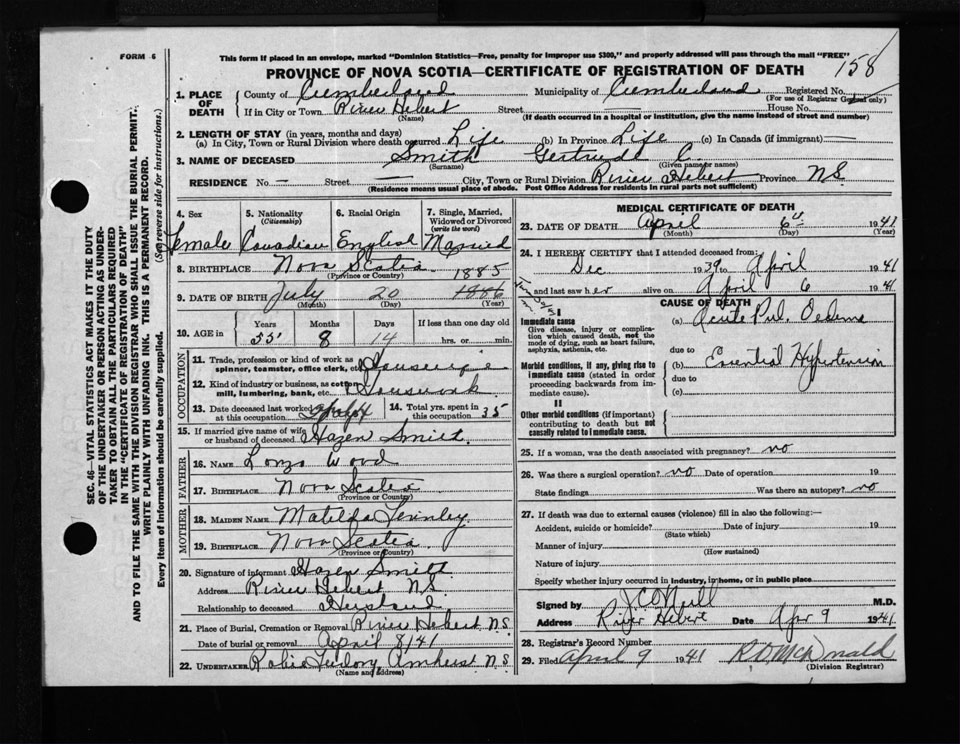 FORM 6
This form if placed in an envelope, marked "Dominion Statistics—Free, penalty for improper use $300," and properly addressed will pass through the mail "FREE"
158
PROVINCE OF NOVA SCOTIA—CERTIFICATE OF REGISTRATION OF DEATH
1. PLACE OF DEATH County of Cumberland Municipality of Cumberland Registered No.
(For use of Registrar General only)
If in City or Town River Hebert Street House No.
(Name) (If death occurred in a hospital or institution, give the name instead of street and number)
2. LENGTH OF STAY (in years, months and days)
(a) In City, Town or Rural Division where death occurred Life (b) In Province Life (c) In Canada (if immigrant)
3. NAME OF DECEASED Smith Gertrude C.
(Surname) (Given name or names)
RESIDENCE No. — Street — City, Town or Rural Division River Hebert Province N.S.
(Residence means usual place of abode. Post Office Address for residents in rural parts not sufficient)
4. Sex Female
5. Nationality (Citizenship) Canadian
6. Racial Origin English
7. Single, Married, Widowed or Divorced (write the word) Married
8. BIRTHPLACE Nova Scotia
(Province or Country)
1885
9. DATE OF BIRTH July 20 1886
(Month) (Day) (Year)
10. AGE in Years Months Days If less than one day old
55 8 14 hrs. or min.
OCCUPATION
11. Trade, profession or kind of work as spinner, teamster, office clerk, etc. Housewife
12. Kind of industry or business, as cotton mill, lumbering, bank, etc. Housework
13. Date deceased last worked at this occupation
14. Total yrs. spent in this occupation 35
15. If married give name of wife or husband of deceased Hazen Smith
FATHER
16. NAME Lonzo Wood
17. BIRTHPLACE Nova Scotia
(Province or Country)
MOTHER
18. MAIDEN NAME Matilda
19. BIRTHPLACE Nova Scotia
(Province or Country)
20. Signature of informant Hazen Smith
Address River Hebert N.S.
Relationship to deceased Husband
21. Place of Burial, Cremation or Removal River Hebert N.S.
Date of burial or removal April 8/41
22. UNDERTAKER Amherst N.S.
(Name and address)
MEDICAL CERTIFICATE OF DEATH
23. DATE OF DEATH April 6 1941
(Month) (Day) (Year)
24. I HEREBY CERTIFY that I attended deceased from:
Dec 1939 to April 1941
and last saw her alive on April 6 1941
CAUSE OF DEATH
I
Immediate cause
Give disease, injury or complication which caused death, not the mode of dying, such as heart failure, asphyxia, asthenia, etc.
(a) Acute Pul. Oedema
due to
Morbid conditions, if any, giving rise to immediate cause (stated in order proceeding backwards from immediate cause).
Essential Hypertension
due to
(c)
II
Other morbid conditions (if important) contributing to death but not causally related to immediate cause.
25. If a woman, was the death associated with pregnancy? no
26. Was there a surgical operation? no Date of operation 19
State findings Was there an autopsy? no
27. If death was due to external causes (violence) fill in also the following:—
Accident, suicide or homicide? Date of injury 19
(State which)
Manner of injury
(How sustained)
Nature of injury
Specify whether injury occurred in industry, in home, or in public place
Signed by J.C. O'Neill M.D.
Address River Hebert Date Apr 9 1941
28. Registrar's Record Number
29. Filed April 9 1941 R.D. McDonald
(Division Registrar)
SEC. 46—VITAL STATISTICS ACT MAKES IT THE DUTY
OF THE UNDERTAKER OR PERSON ACTING AS UNDER-
TAKER TO OBTAIN ALL THE PARTICULARS REQUIRED
IN THE "CERTIFICATE OF REGISTRATION OF DEATH"
AND TO FILE THE SAME WITH THE DIVISION REGISTRAR WHO SHALL ISSUE THE BURIAL PERMIT.
WRITE PLAINLY WITH UNFADING INK. THIS IS A PERMANENT RECORD.
Every item of information should be carefully supplied. (See reverse side for instructions.)